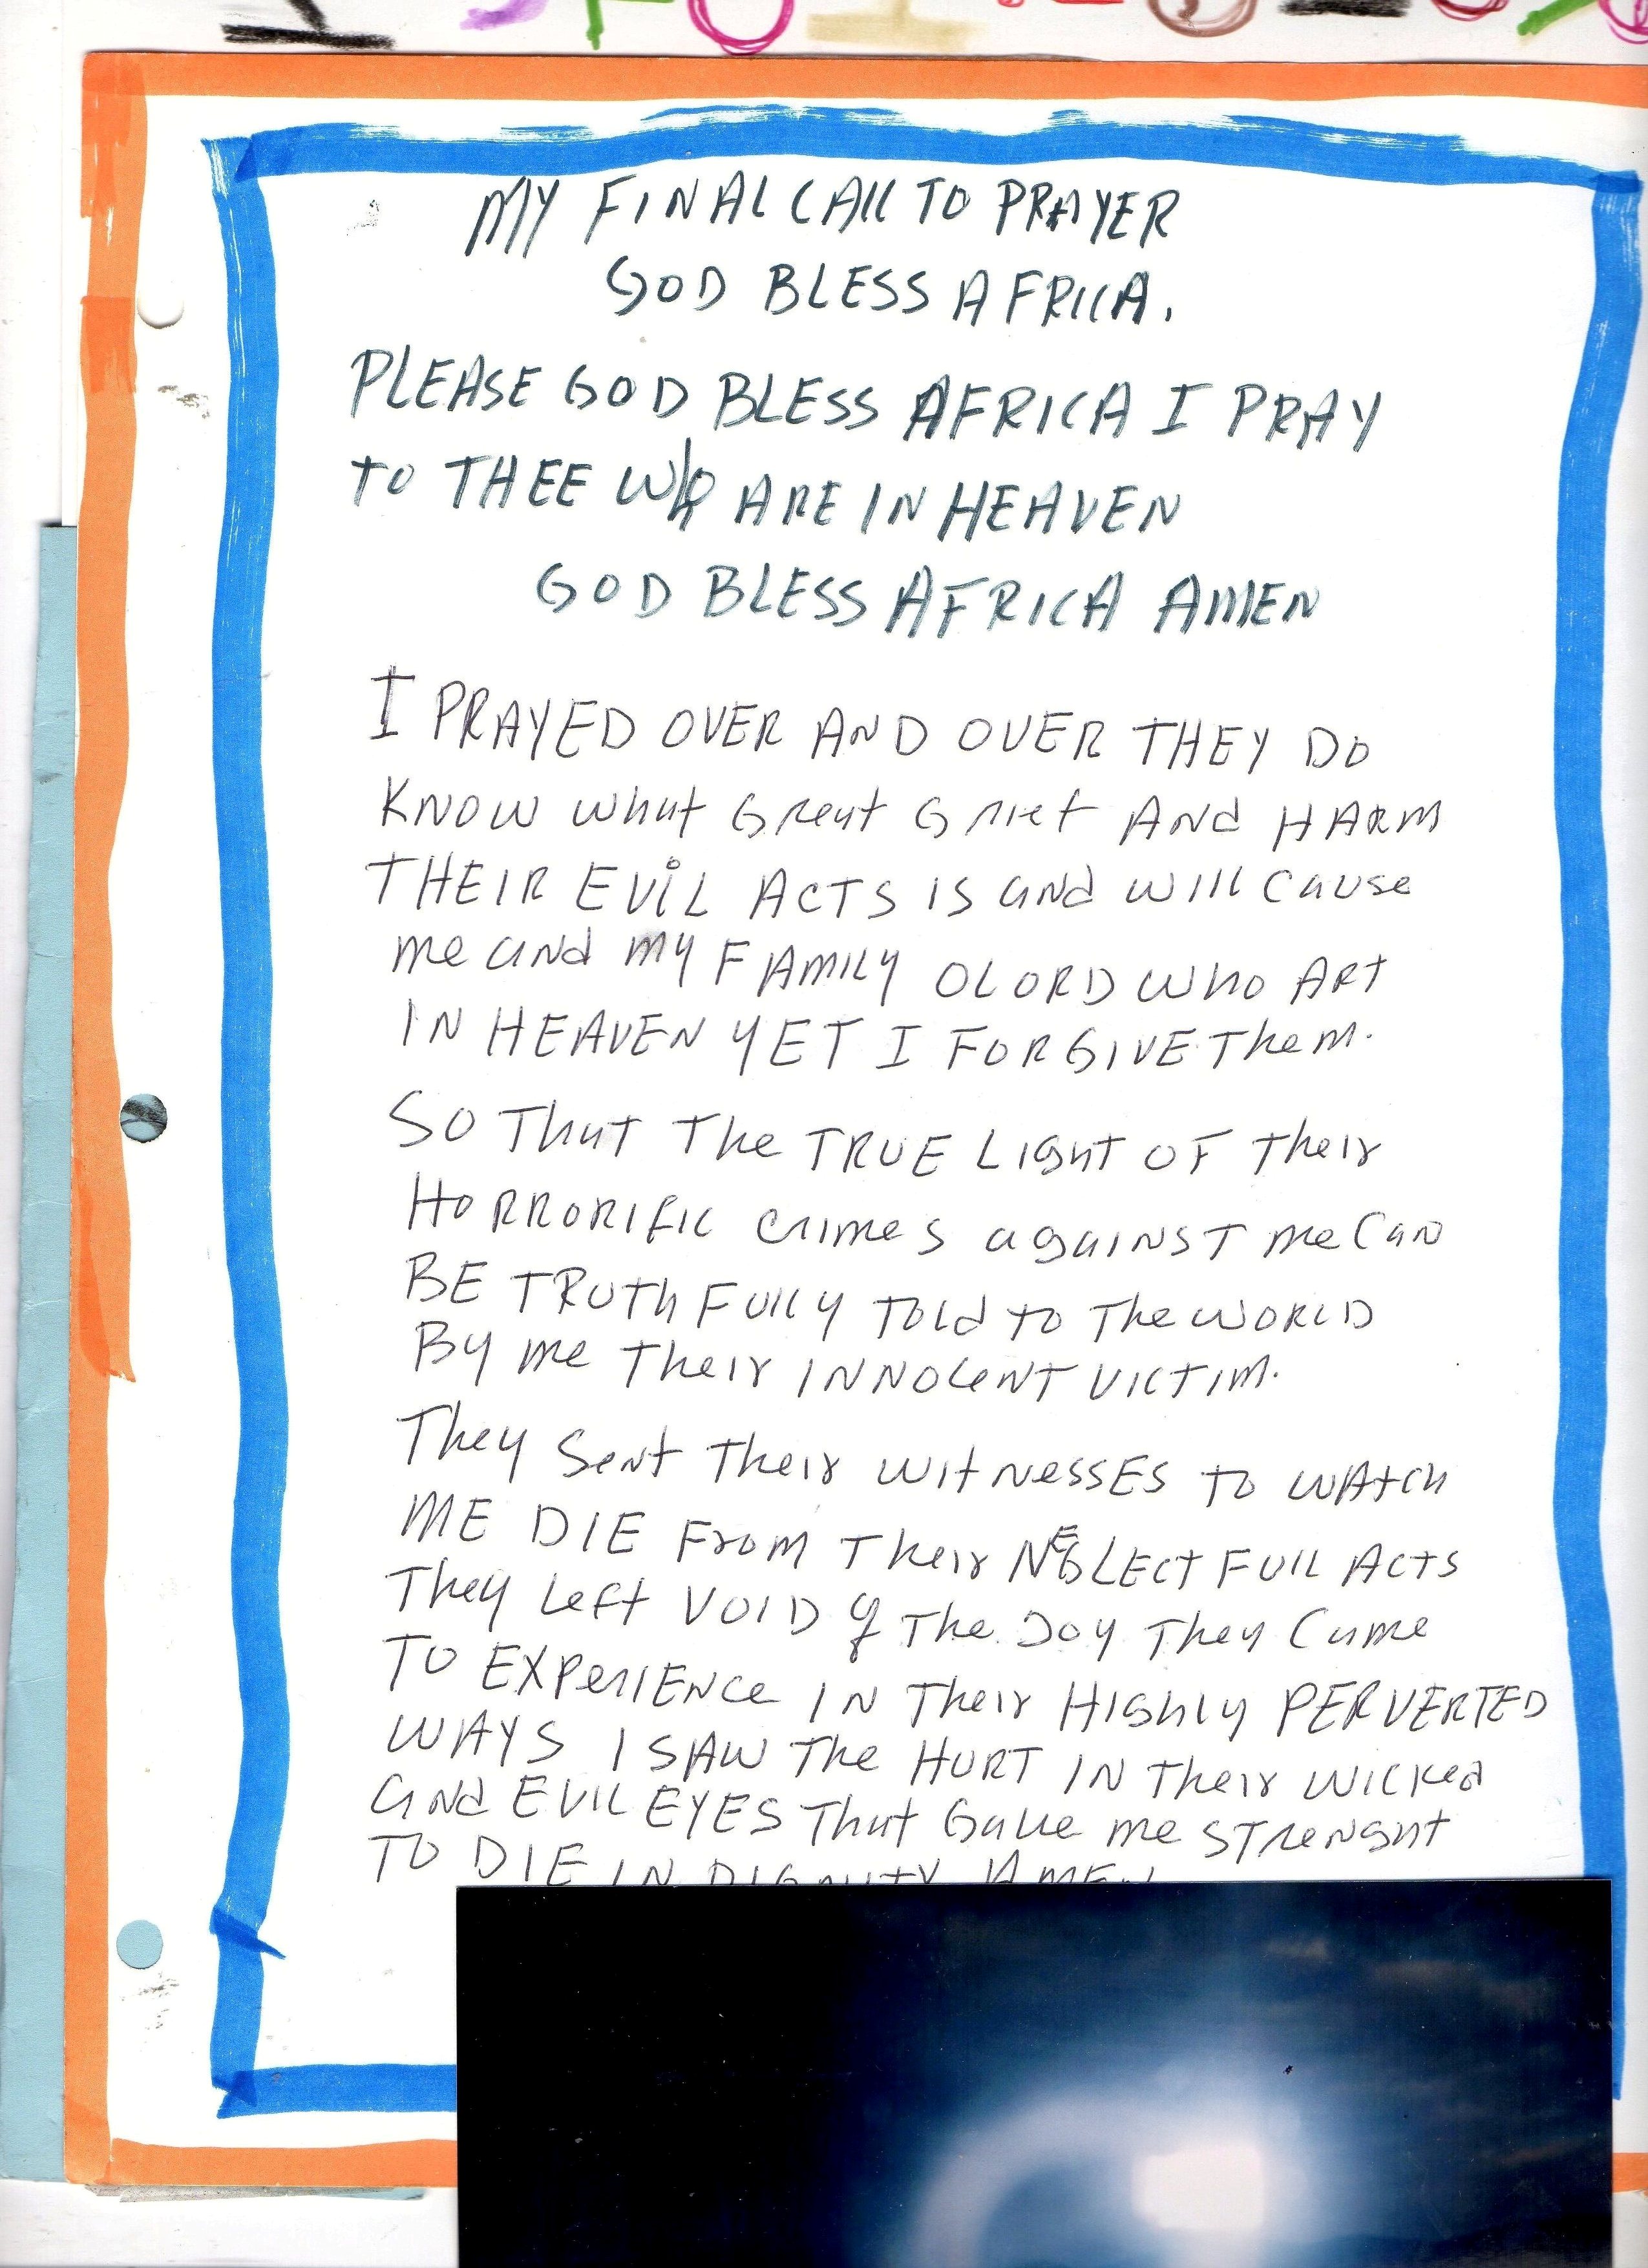 MY FINAL CALL TO PRAYER
GOD BLESS AFRICA.
PLEASE GOD BLESS AFRICA I PRAY
TO THEE WHO ARE IN HEAVEN
GOD BLESS AFRICA AMEN
I PRAYED OVER AND OVER THEY DO
KNOW what Great Grief AND HARM
THEIR EVIL ACTS IS and will cause
me and my FAMILY O LORD who ART
IN HEAVEN YET I FORGIVE Them.
SO That The TRUE Light OF Their
HORRORIFIC crimes against me Can
BE TRUTHFULLY TOLD TO The WORLD
By me Their INNOCENT VICTIM.
They Sent Their WITNESSES TO WATCH
ME DIE From Their NEGLECTFULL ACTS
They Left VOID of The Joy They Came
TO EXPERIENCE IN Their Highly PERVERTED
WAYS I SAW The HURT IN Their Wicked
and EVIL EYES That Gave me STRENGHT
TO DIE IN DIGNITY AMEN